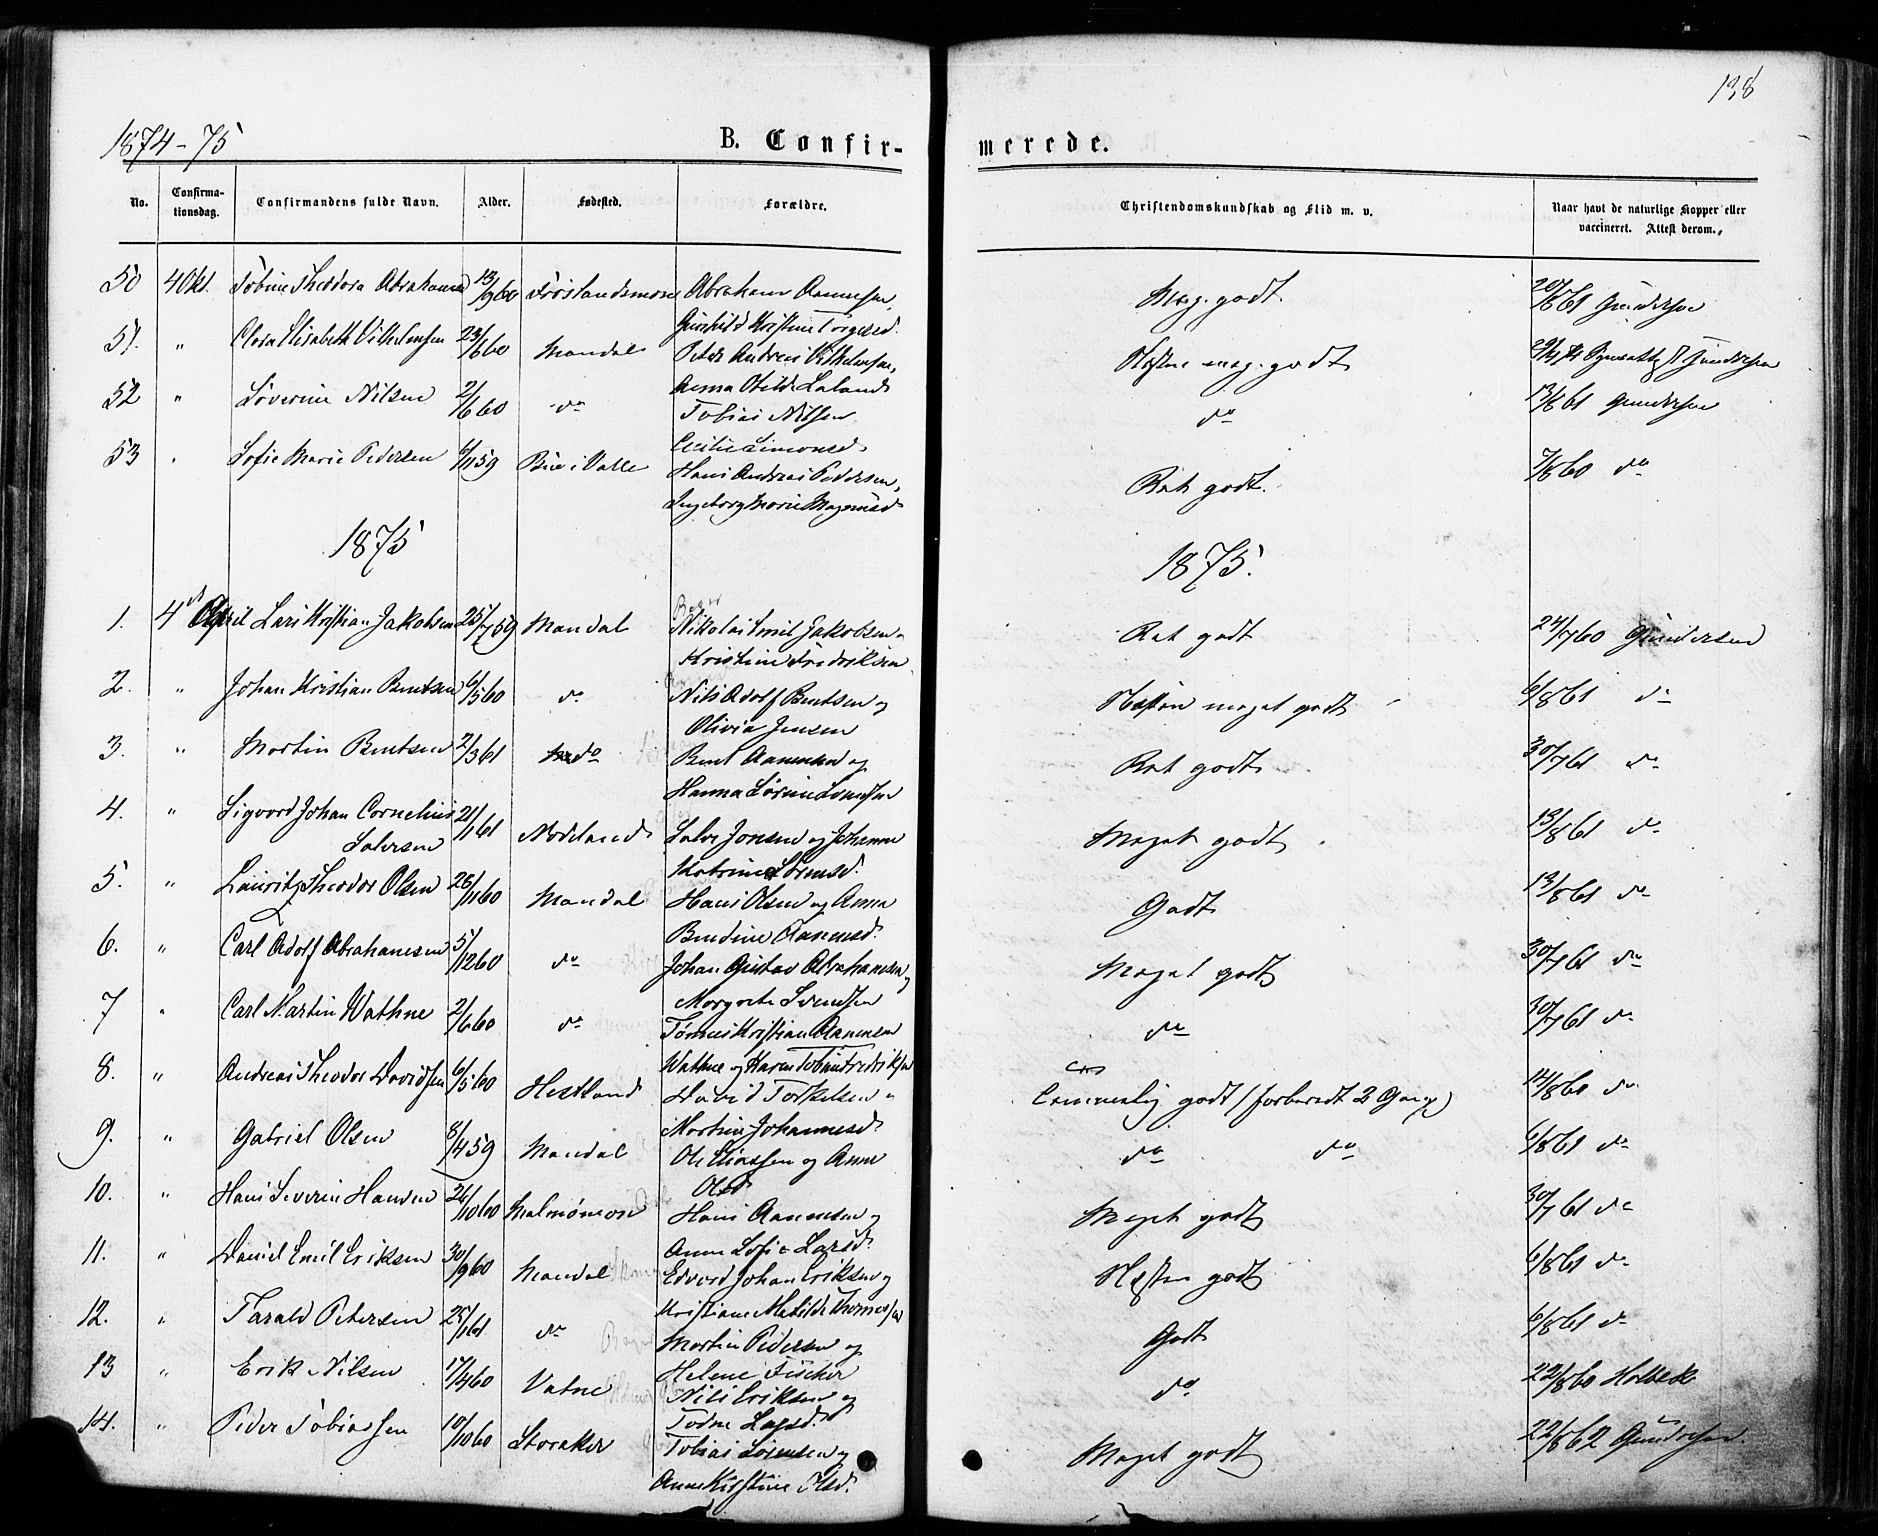 138
1874-75
B. Confir-
merede.
No.
Confirma-
tionsdag.
Confirmandens fulde Navn.
Alder.
Fødested.
Forældre.
Christendomskundskab og Flid m. v.
Naar havt de naturlige Kopper eller
vaccineret. Attest derom.
50 4 Okt. Tobine Theodora Abrahamsen 13/9 60 Frøslandsmoen Abraham Aanensen, Meg. godt. 20/8 61 Gundersen
Gunhild Kristine Torgesd.
51. " Clara Elisabeth Vilhelmsen 23/6 60 Mandal Peter Andreas Vilhelmsen, Næsten meg. godt Gundersen
Anna Otilde Laland
52 " Søverine Nilsen 2/6 60 do Tobias Nilsen do 13/8 61 Gundersen
Cecilie Simonsd.
53 " Sofie Marie Pedersen 6/11 59 Bue i Valle Hans Andreas Pedersen, Ret godt. 7/8 60 do
Ingeborg Marie Magnusd.
1875 1875.
1. 4de April Lars Kristian Jakobsen 25/7 59 Mandal Nikolai Emil Jakobsen - Ret godt 24/7 60 Gundersen
Kristine Fredriksen
2. " Johan Kristian Bentsen 6/5 60 do Nils Adolf Bentsen og Næsten meget godt 6/8 61 do
Olivia Jensen
3. " Martin Bentsen 2/3 61 do Bent Aanensen og Ret godt 30/7 61 do
Hanna Sørine Svendsen
4. " Sigvard Johan Cornelius 21/1 61 Nodeland Salve Jonsen og Johanne Meget godt 13/8 61 do
Salvesen
Katrine Sørensd.
5. " Lauritz Theodor Olsen 26/11 60 Mandal Hans Olsen og Anna Godt 13/8 61 do
Bendine Aanensd.
6. " Carl Adolf Abrahamsen 5/12 60 do Johan Gustav Abrahamsen og Meget godt 30/7 61 do
Margrete Svendsen
7 " Carl Martin Wathne 2/6 60 do Tønnes Kristian Aanensen do 30/7 61 do
Wathne og Karen Tobine Fredriksen
8. " Andreas Theodor Davidsen 6/5 60 Hestland David Torkelsen - Temmelig godt (forberedt 2 Gange) 14/8 60 do
Martine Johannesd.
9. " Gabriel Olsen 8/4 59 Mandal Ole Eliassen og Anne do do 6/8 61 do
Olsd.
10. " Hans Severin Hansen 26/10 60 Malmømoen Hans Aanensen og Meget godt 30/7 61 do
Anne Sofie Larsd.
11. " Daniel Emil Eriksen 30/9 60 Mandal Edvard Johan Eriksen og Næsten godt 6/8 61 do
Kristiane Matilde Thomassen
12. " Tarald Petersen 25/1 61 do Martin Pedersen og Godt 6/8 61 do
Helene Fischer
13 " Erik Nilsen 17/4 60 Vatne Nils Eriksen og do 22/8 60 Holbek
Todne Larsd.
14. " Peder Tobiassen 10/10 60 Storaker Tobias Sørensen og Meget godt 22/8 62 Gundersen.
Anne Kirstine Olsd.